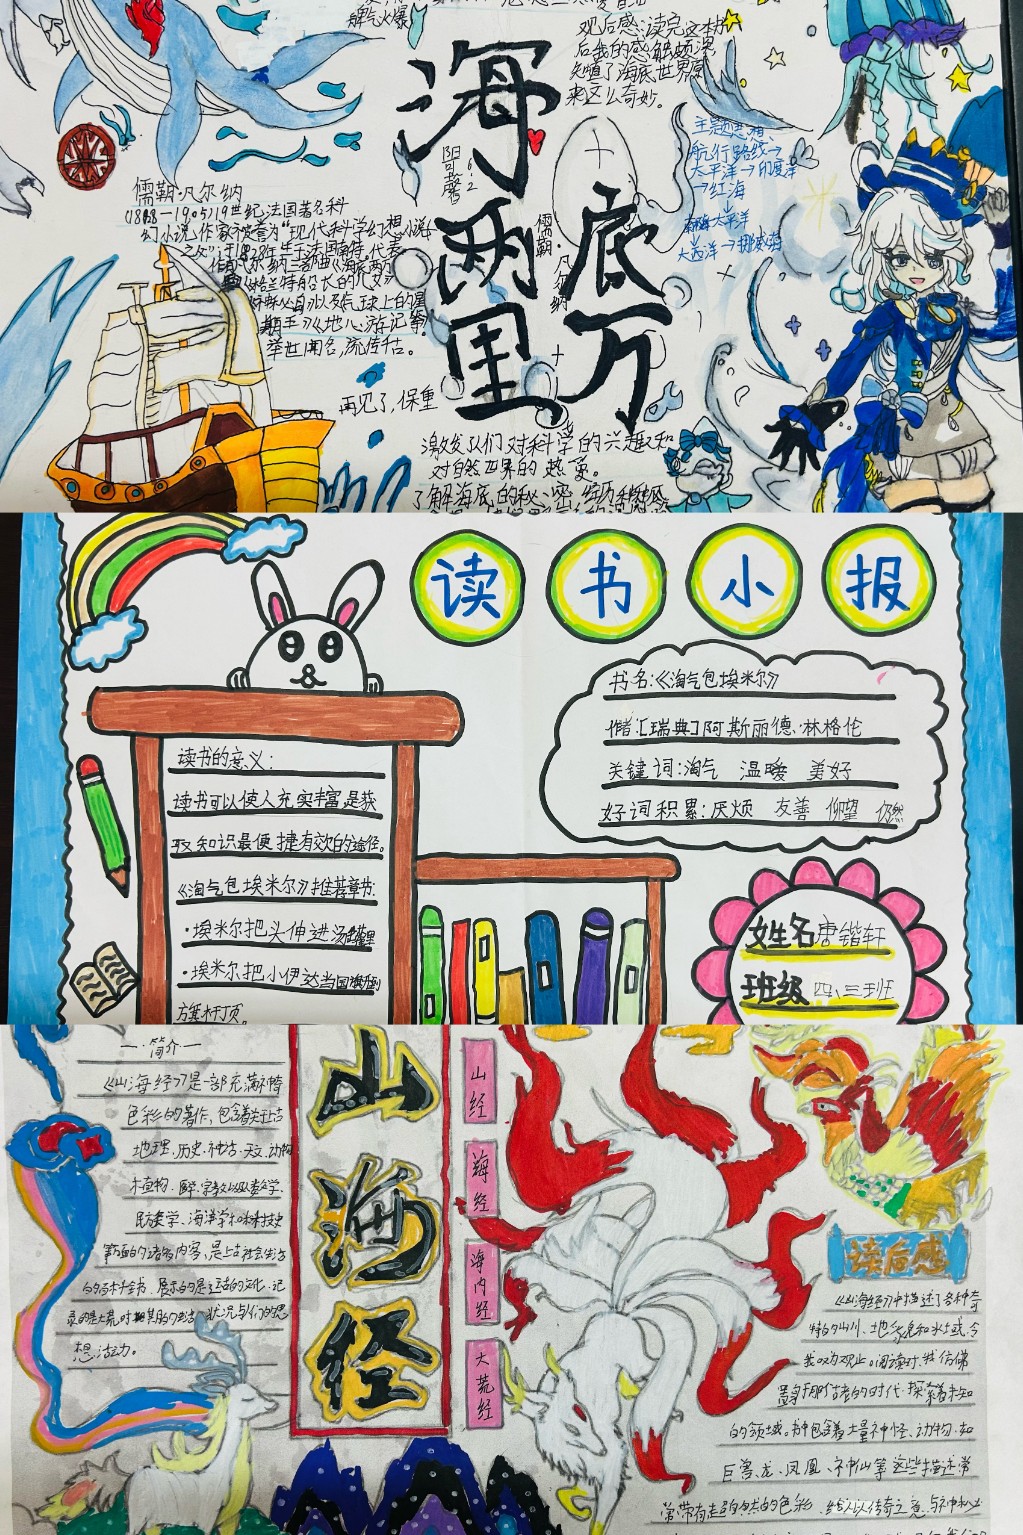 脾气火爆
观后感:读完这本书
后我的感触颇深
知道了海底世界原
来这么奇妙。
海底两万里
儒勒·凡尔纳
主题思想:
航行路线→
太平洋→印度洋
→红海
南太平洋
大西洋→挪威海
儒勒·凡尔纳
(1828—1905)19世纪法国著名科
幻小说作家被誉为“现代科学幻想小说
举世闻名,流传千古。
再见了,保重
激发人们对科学的兴趣和
对自然世界的热爱。
了解海底的秘密,经历
读书小报
书名:《淘气包埃米尔》
作者:[瑞典]阿斯丽德·林格伦
关键词:淘气 温暖 美好
好词积累:厌烦 友善 仰望 仍然
读书的意义:
读书可以使人充实丰富是获
取知识最便捷有效的途径。
《淘气包埃米尔》推荐章节:
·埃米尔把头伸进汤罐里
·埃米尔把小伊达当国旗升到
旗杆顶。
姓名 唐锴轩
班级 四、三班
一·简介一
《山海经》是一部充满神奇
色彩的著作,包含着关于上古
地理、历史、神话、天文、动物
植物、医学、宗教以及人类学、
民族学、海洋学和科技史
等方面的诸多内容,是上古社会生活
的百科全书。展示的是远古的文化,记
想活动。
山海经
山经
海经
海内经
大荒经
读后感
《山海经》中描述了各种奇
特的山川、地貌和水域,令
我叹为观止。阅读时,我仿佛
置身于那个古老的时代,探索着未知
的领域。书中包含着大量神怪、动物,如
巨兽、龙、凤凰、神仙等,这些描述常
常带有超自然的色彩,给人以传奇之意,与神秘